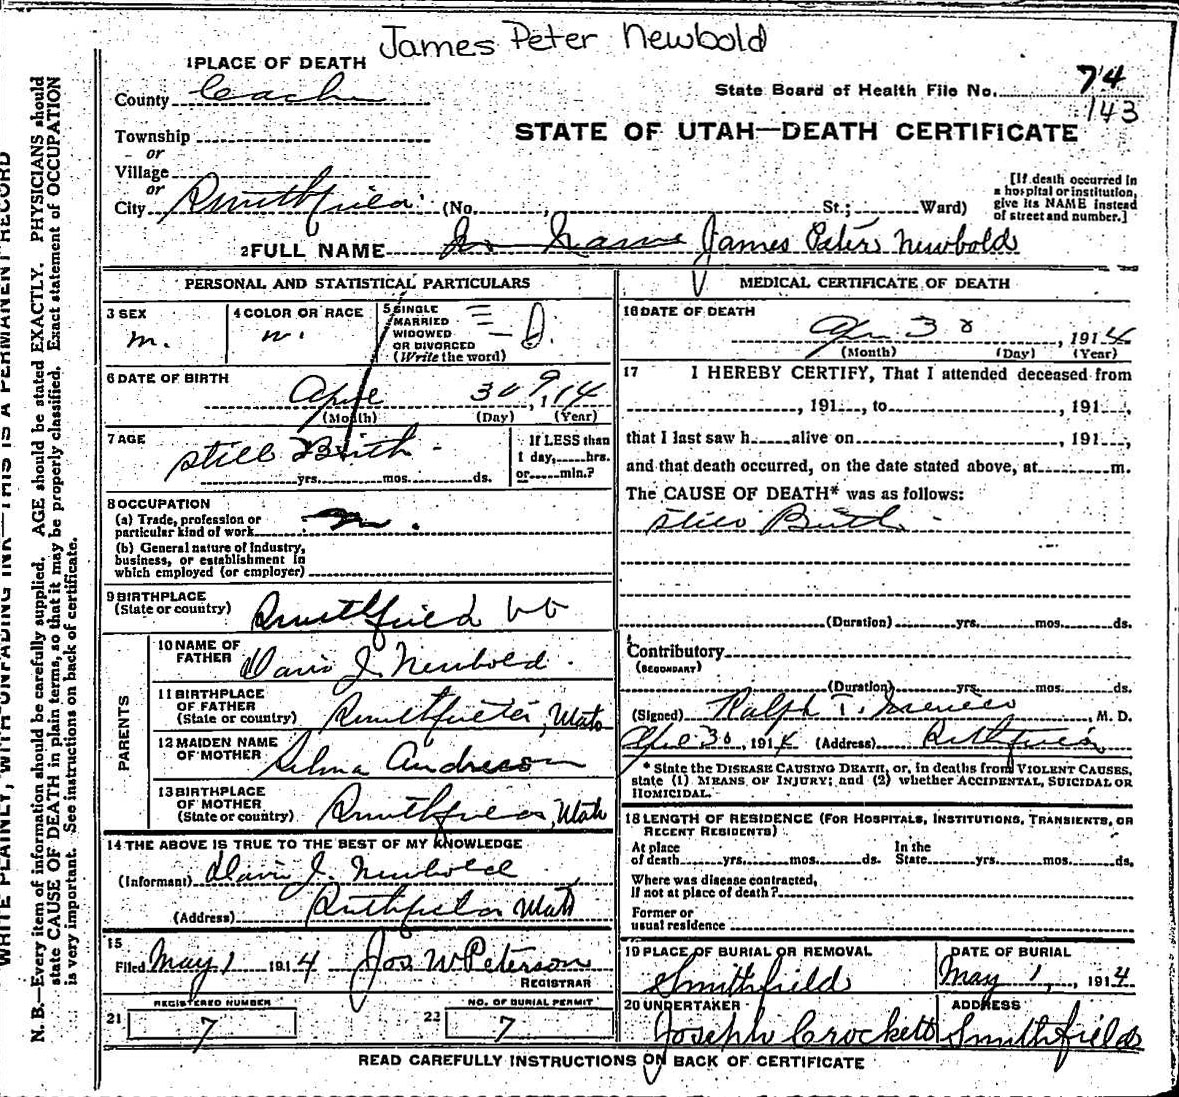 James Peter Newbold
1 PLACE OF DEATH
County Cache
State Board of Health File No. 74
143
Township
STATE OF UTAH—DEATH CERTIFICATE
or
Village
or
City Smithfield (No. , St.; Ward)
[If death occurred in a hospital or institution, give its NAME instead of street and number.]
2 FULL NAME No Name James Peter Newbold
PERSONAL AND STATISTICAL PARTICULARS
3 SEX
m.
4 COLOR OR RACE
w.
5 SINGLE
MARRIED
WIDOWED
OR DIVORCED
(Write the word)
6 DATE OF BIRTH
April 30, 1914
(Month) (Day) (Year)
7 AGE
Still Birth
yrs. mos. ds.
If LESS than
1 day, hrs.
or min.?
8 OCCUPATION
(a) Trade, profession or
particular kind of work
(b) General nature of Industry,
business, or establishment in
which employed (or employer)
9 BIRTHPLACE
(State or country) Smithfield
PARENTS
10 NAME OF
FATHER David J. Newbold
11 BIRTHPLACE
OF FATHER
(State or country) Smithfield, Utah
12 MAIDEN NAME
OF MOTHER Selma Andreason
13 BIRTHPLACE
OF MOTHER
(State or country) Smithfield, Utah
14 THE ABOVE IS TRUE TO THE BEST OF MY KNOWLEDGE
(Informant) David J. Newbold
(Address) Smithfield Utah
15
Filed May 1 1914 Jos W Peterson
REGISTRAR
REGISTERED NUMBER
21 7
NO. OF BURIAL PERMIT
22 7
MEDICAL CERTIFICATE OF DEATH
16 DATE OF DEATH
Apr 30, 1914
(Month) (Day) (Year)
17 I HEREBY CERTIFY, That I attended deceased from
, 191 , to , 191 ,
that I last saw h alive on , 191 ,
and that death occurred, on the date stated above, at m.
The CAUSE OF DEATH* was as follows:
Still Birth
(Duration) yrs. mos. ds.
Contributory
(SECONDARY)
(Duration) yrs. mos. ds.
(Signed) Ralph T. , M. D.
April 30, 1914 (Address) Smithfield
* State the DISEASE CAUSING DEATH, or, in deaths from VIOLENT CAUSES,
state (1) MEANS OF INJURY; and (2) whether ACCIDENTAL, SUICIDAL OR
HOMICIDAL.
18 LENGTH OF RESIDENCE (FOR HOSPITALS, INSTITUTIONS, TRANSIENTS, OR
RECENT RESIDENTS)
At place
of death yrs. mos. ds.
In the
State yrs. mos. ds.
Where was disease contracted,
If not at place of death?
Former or
usual residence
19 PLACE OF BURIAL OR REMOVAL
Smithfield
DATE OF BURIAL
May 1, 1914
20 UNDERTAKER
Joseph Crockett
ADDRESS
Smithfield
READ CAREFULLY INSTRUCTIONS ON BACK OF CERTIFICATE
WRITE PLAINLY, WITH UNFADING INK—THIS IS A PERMANENT RECORD
N. B.—Every item of information should be carefully supplied. AGE should be stated EXACTLY. PHYSICIANS should
state CAUSE OF DEATH in plain terms, so that it may be properly classified. Exact statement of OCCUPATION
is very important. See instructions on back of certificate.